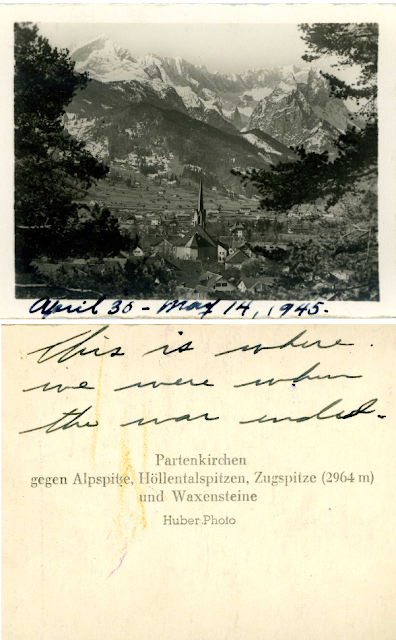 April 30 - May 14, 1945.
This is where
we were when
the war ended.
Partenkirchen
gegen Alpspitze, Höllentalspitzen, Zugspitze (2964 m)
und Waxensteine
Huber-Photo